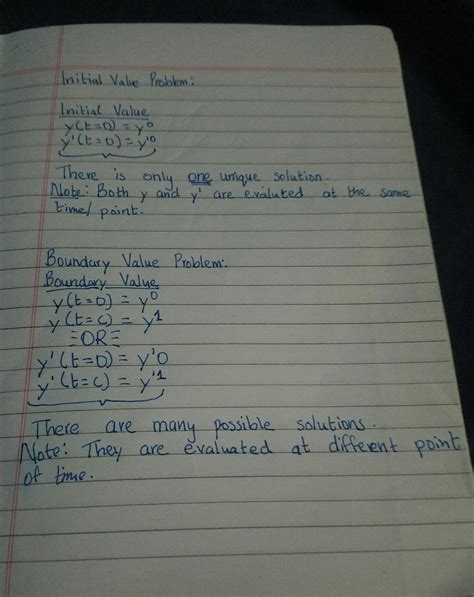 Initial Value Problem:
Initial Value
y(t=0) = y⁰
y'(t=0) = y'⁰
There is only one unique solution.
Note: Both y and y' are evaluted at the same
time/ point.
Boundary Value Problem:
Boundary Value
y(t=0) = y⁰
y(t=c) = y¹
OR
y'(t=0) = y'0
y'(t=c) = y'¹
There are many possible solutions.
Note: They are evaluated at different point
of time.